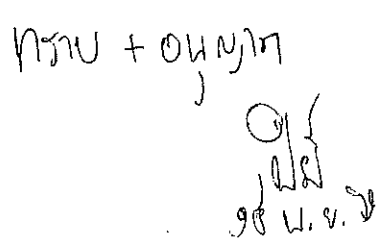 ทราบ + อนุญาต
๑๘ พ.ย.